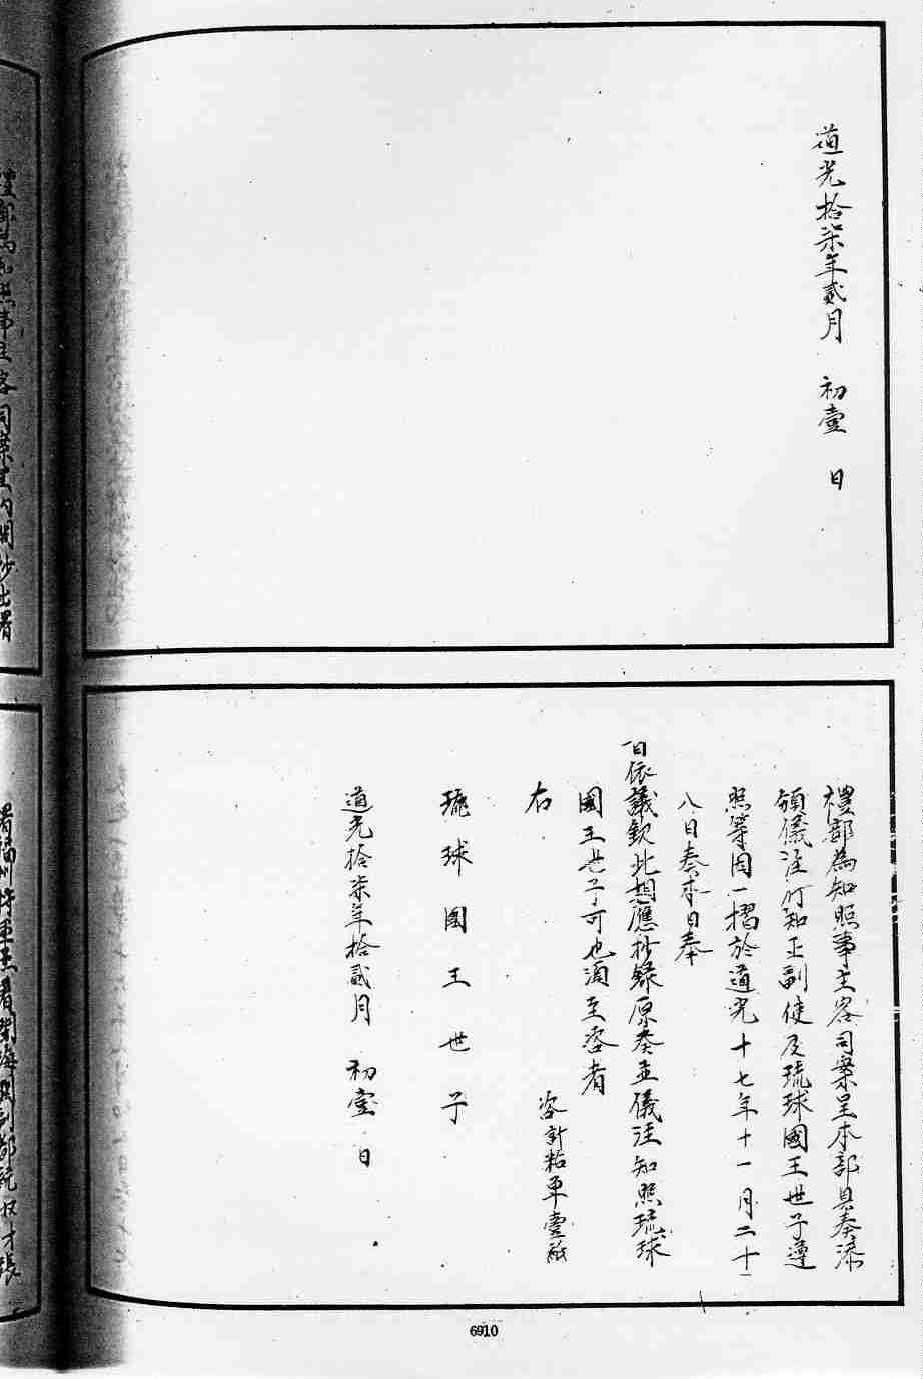 道光拾柒年貳月 初壹 日
禮部為知照事主客司案呈本部具奏添
頒儀注行知正副使及琉球國王世子遵
照等因一摺於道光十七年十一月二十
八日奏本日奉
旨依議欽此相應抄錄原奏並儀注知照琉球
國王世子可也須至咨者
右 咨計粘單壹紙
琉球國王世子
道光拾柒年拾貳月 初壹 日
禮部為知照事主客司案呈內閣抄出署
署福州將軍
6910